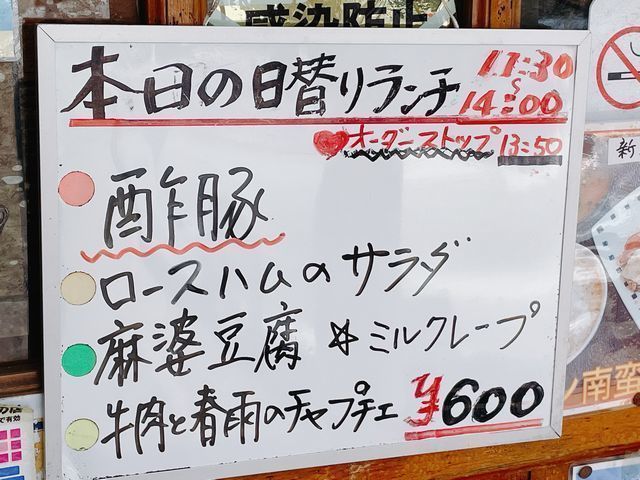 感染防止
本日の日替りランチ 11:30
~
14:00
オーダーストップ 13:50
酢豚
ロースハムのサラダ
麻婆豆腐 ☆ミルクレープ
牛肉と春雨のチャプチェ ¥600
新
ノ南蛮